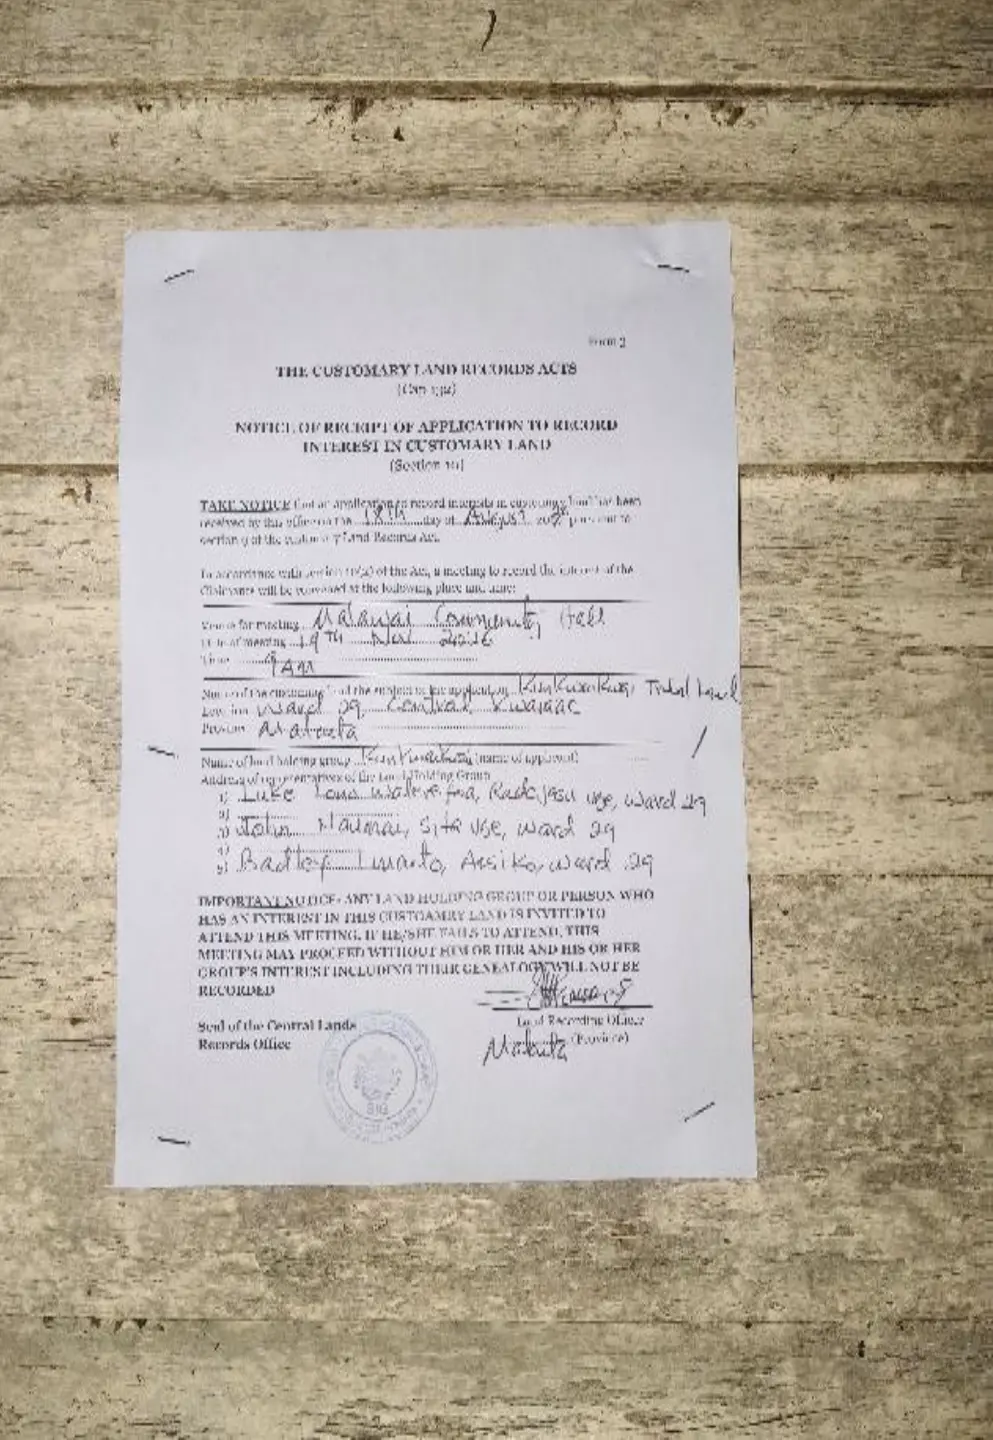 Form 2
THE CUSTOMARY LAND RECORDS ACTS
NOTICE OF RECEIPT OF APPLICATION TO RECORD
INTEREST IN CUSTOMARY LAND
(Section 10)
TAKE NOTICE that an application to record interests in customary land has been
received by this office on the 18TH day of August pursuant to
section 9 of the customary Land Records Act.
In accordance with section 10(2) of the Act, a meeting to record the interest of the
Claimants will be convened at the following place and time:
Venue for meeting Community Hall
Date of meeting 19TH Nov
Time 9AM
Name of the customary land the subject of the application Kunkwankwai Tribal Land
Location Ward 29, Central
Province Malaita
Name of land holding group (name of applicant)
Address of representatives of the Land Holding Group
1) Luke Ward 29
John Sita vge, ward 29
5) Ward 29
IMPORTANT NOTICE: ANY LAND HOLDING GROUP OR PERSON WHO
HAS AN INTEREST IN THIS CUSTOAMRY LAND IS INVITED TO
ATTEND THIS MEETING. IF HE/SHE FAILS TO ATTEND, THIS
MEETING MAY PROCEED WITHOUT HIM OR HER AND HIS OR HER
GROUP'S INTEREST INCLUDING THEIR GENEALOGY WILL NOT BE
RECORDED
Seal of the Central Lands
Records Office
Land Recording Officer
Malaita (Province)
SIG